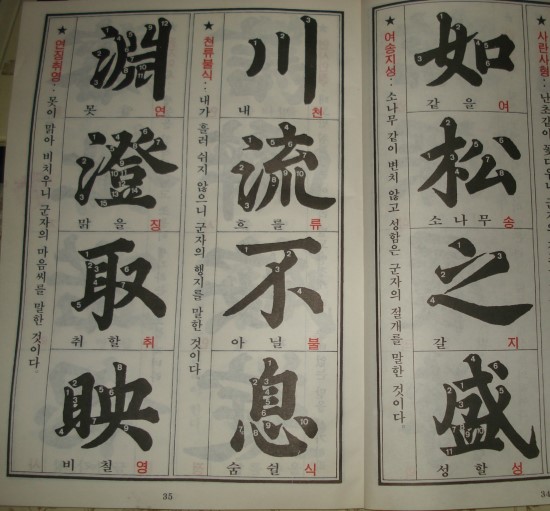 사란사형
如
같을 여
松
소나무 송
之
갈 지
盛
성할 성
★ 여송지성 : 소나무 같이 변치 않고 성함은 군자의 절개를 말한 것이다.
34
川
내 천
流
흐를 류
不
아닐 불
息
숨쉴 식
★ 천류불식 : 내가 흘러 쉬지 않으니 군자의 행지를 말한 것이다.
淵
못 연
澄
맑을 징
取
취할 취
映
비칠 영
★ 연징취영 : 못이 맑아 비치우니 군자의 마음씨를 말한 것이다.
35